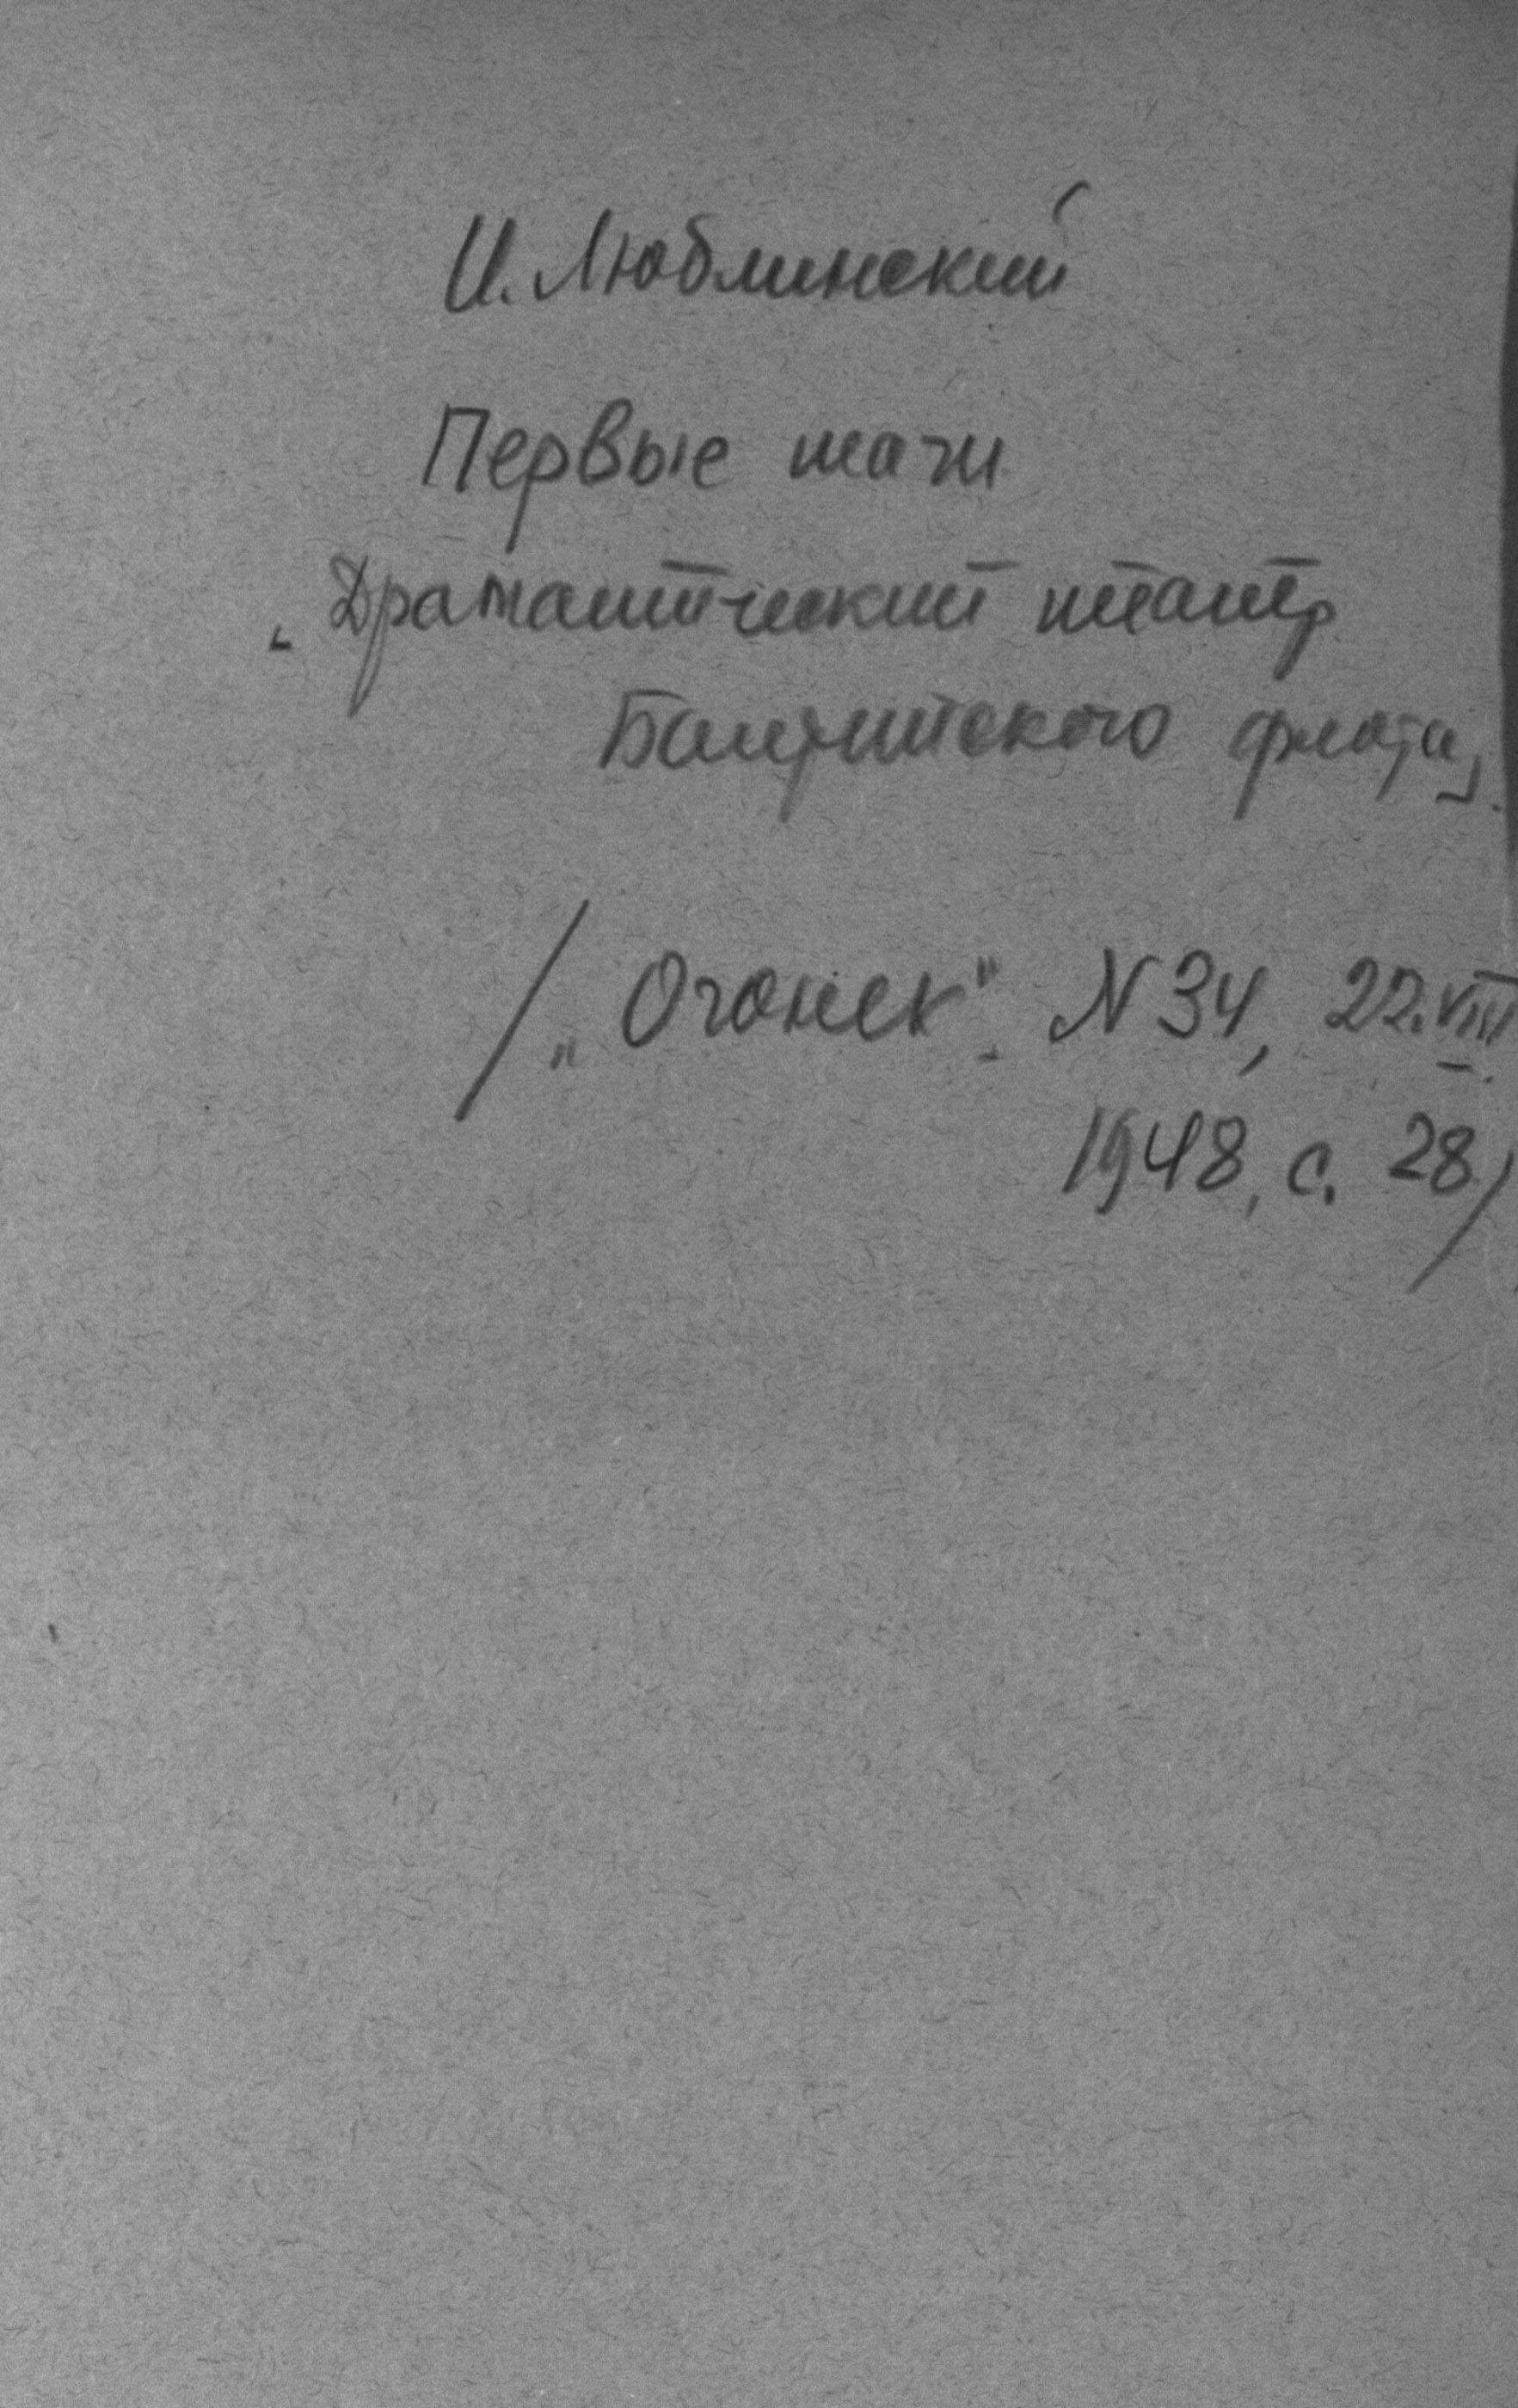 И. Люблинский
Первые шаги
„Драматический театр
Балтийского флота"
/„Огонек". N 34, 22.VIII
1948, с. 28/